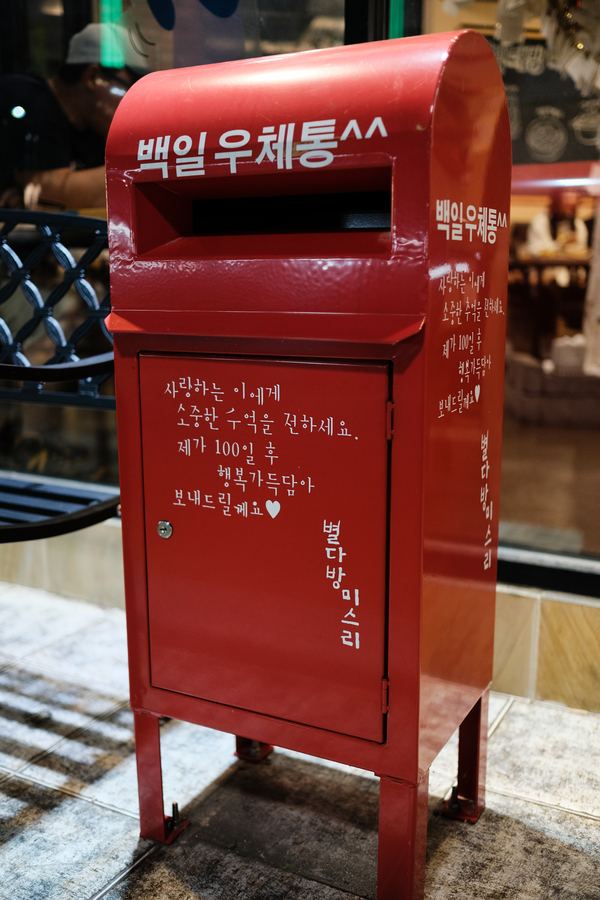 백일우체통^^
사랑하는 이에게
소중한 추억을 전하세요.
제가 100일 후
행복가득담아
보내드릴께요♥
별다방미스리
백일우체통^^
사랑하는 이에게
소중한 추억을 전하세요.
제가 100일 후
행복가득담아
보내드릴께요♥
별다방미스리